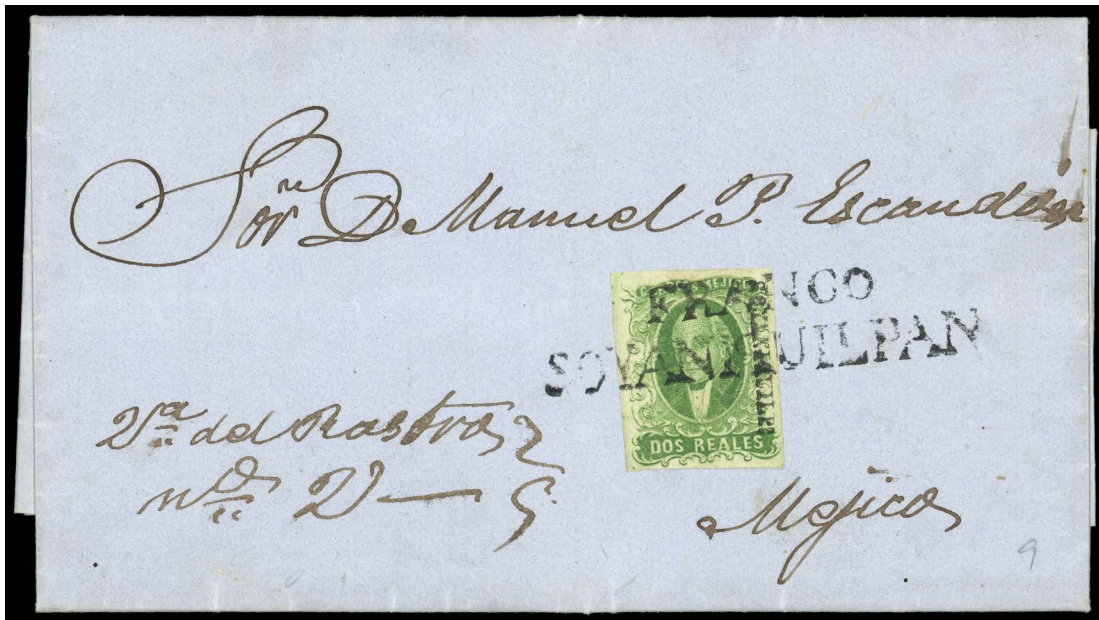 Sor. D Manuel P. Escandón
FRANCO
SOYANIQUILPAN
DOS REALES
2ª del Rastro
nº 2
Mejico
9